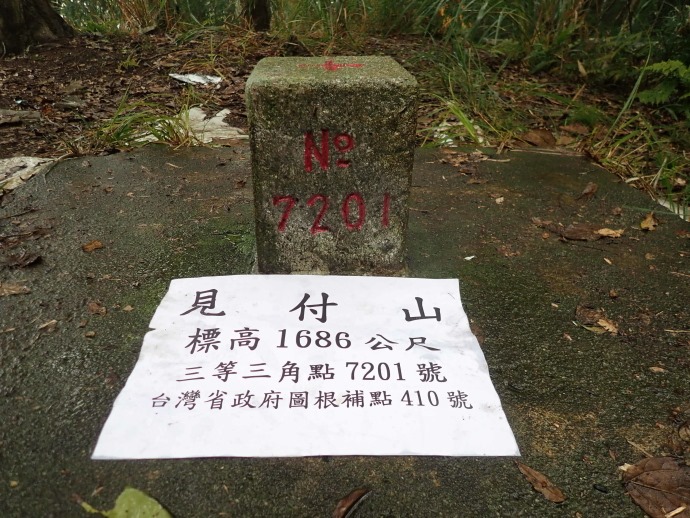 No
7201
見付山
標高1686公尺
三等三角點7201號
台灣省政府圖根補點410號